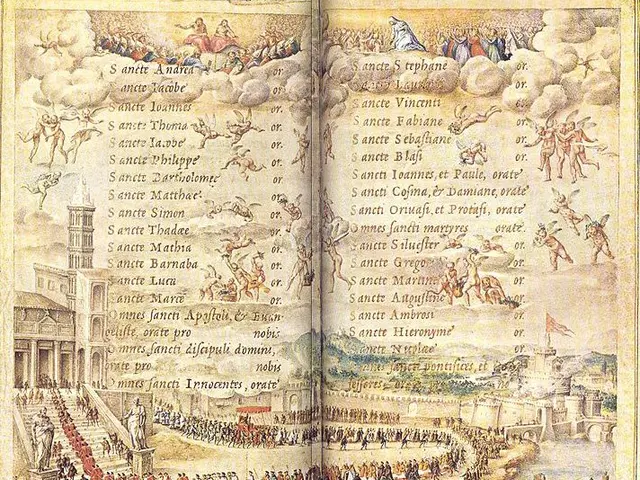 Sancte Andrea or.
Sancte Iacobe or.
Sancte Ioannes or.
Sancte Thoma or.
Sancte Iacobe or.
Sancte Philippe or.
Sancte Bartholomee or.
Sancte Matthæe or.
Sancte Simon or.
Sancte Thadæe or.
Sancte Mathia or.
Sancte Barnaba or.
Sancte Luca or.
Sancte Marce or.
Omnes sancti Apostoli, & Euan-
geliste, orate pro nobis.
Omnes sancti discipuli domini,
orate pro nobis
Omnes sancti Innocentes, orate
Sancte Stephane or.
or.
Sancte Vincenti or.
Sancte Fabiane or.
Sancte Sebastiane or.
Sancte Blasi or.
Sancti Ioannes, et Paule, orate
Sancti Cosma, & Damiane, orate
Sancti Geruasi, et Protasi, orate
Omnes sancti martyres orate
Sancte Siluester or.
Sancte Grego or.
Sancte Martine or.
Sancte Augustine or.
Sancte Ambrosi or.
Sancte Hieronyme or.
Sancte Nicolae or.
Omnes sancti pontifices, et